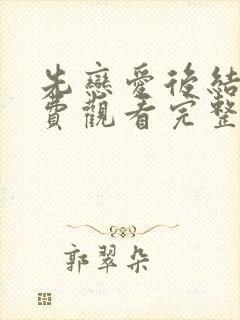 先戀愛後結
費觀看完整
郭翠朵